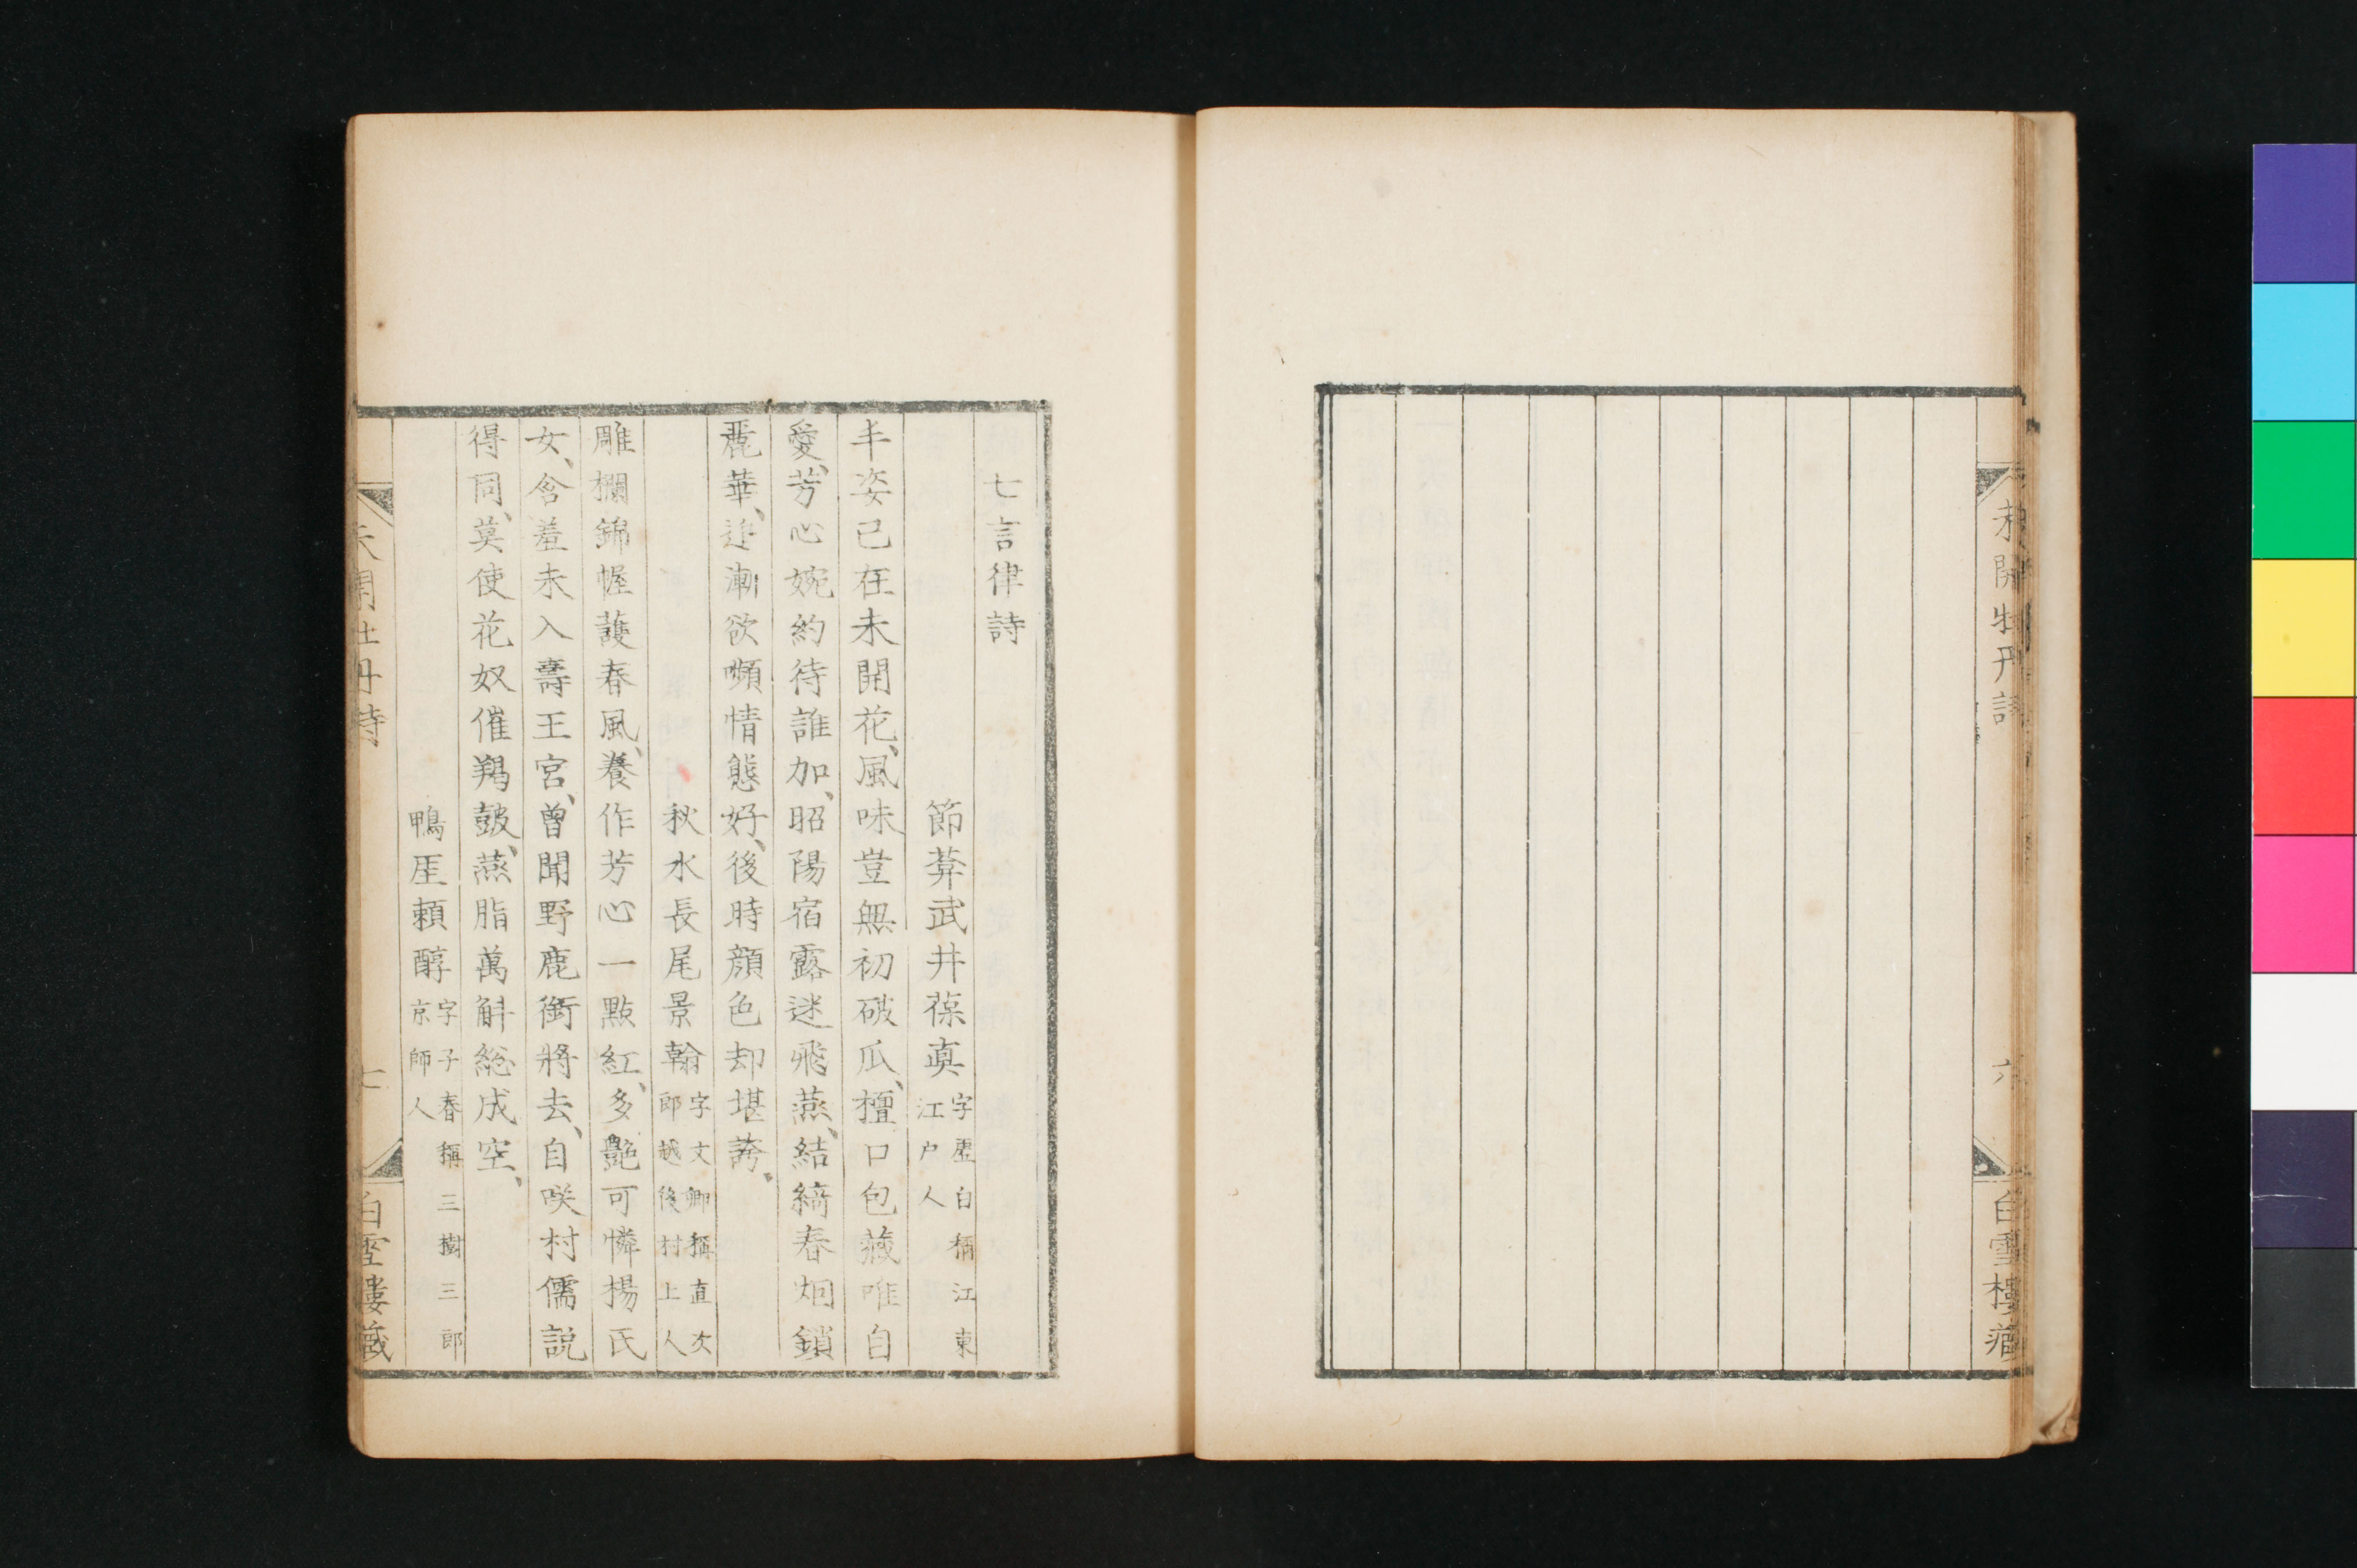 未開牡丹詩
六
白雪樓藏
七言律詩
節葊武井葆真 字虚白稱江東 江戸人
丰姿已在未開花、風味豈無初破瓜、檀口包藏唯自
愛、芳心婉約待誰加、昭陽宿露迷飛燕、結綺春烟鎖
麗華、迎漸欲嚬情態好、後時顔色却堪誇、
秋水長尾景翰 字文卿稱直次 郎越後村上人
雕欄錦幄護春風、養作芳心一點紅、多艶可憐楊氏
女、含羞未入壽王宮、曾聞野鹿銜將去、自咲村儒説
得同、莫使花奴催羯鼓、燕脂萬斛総成空、
鴨厓頼醇 字子春稱三樹三郎 京師人
未開牡丹詩
七
白雪樓藏